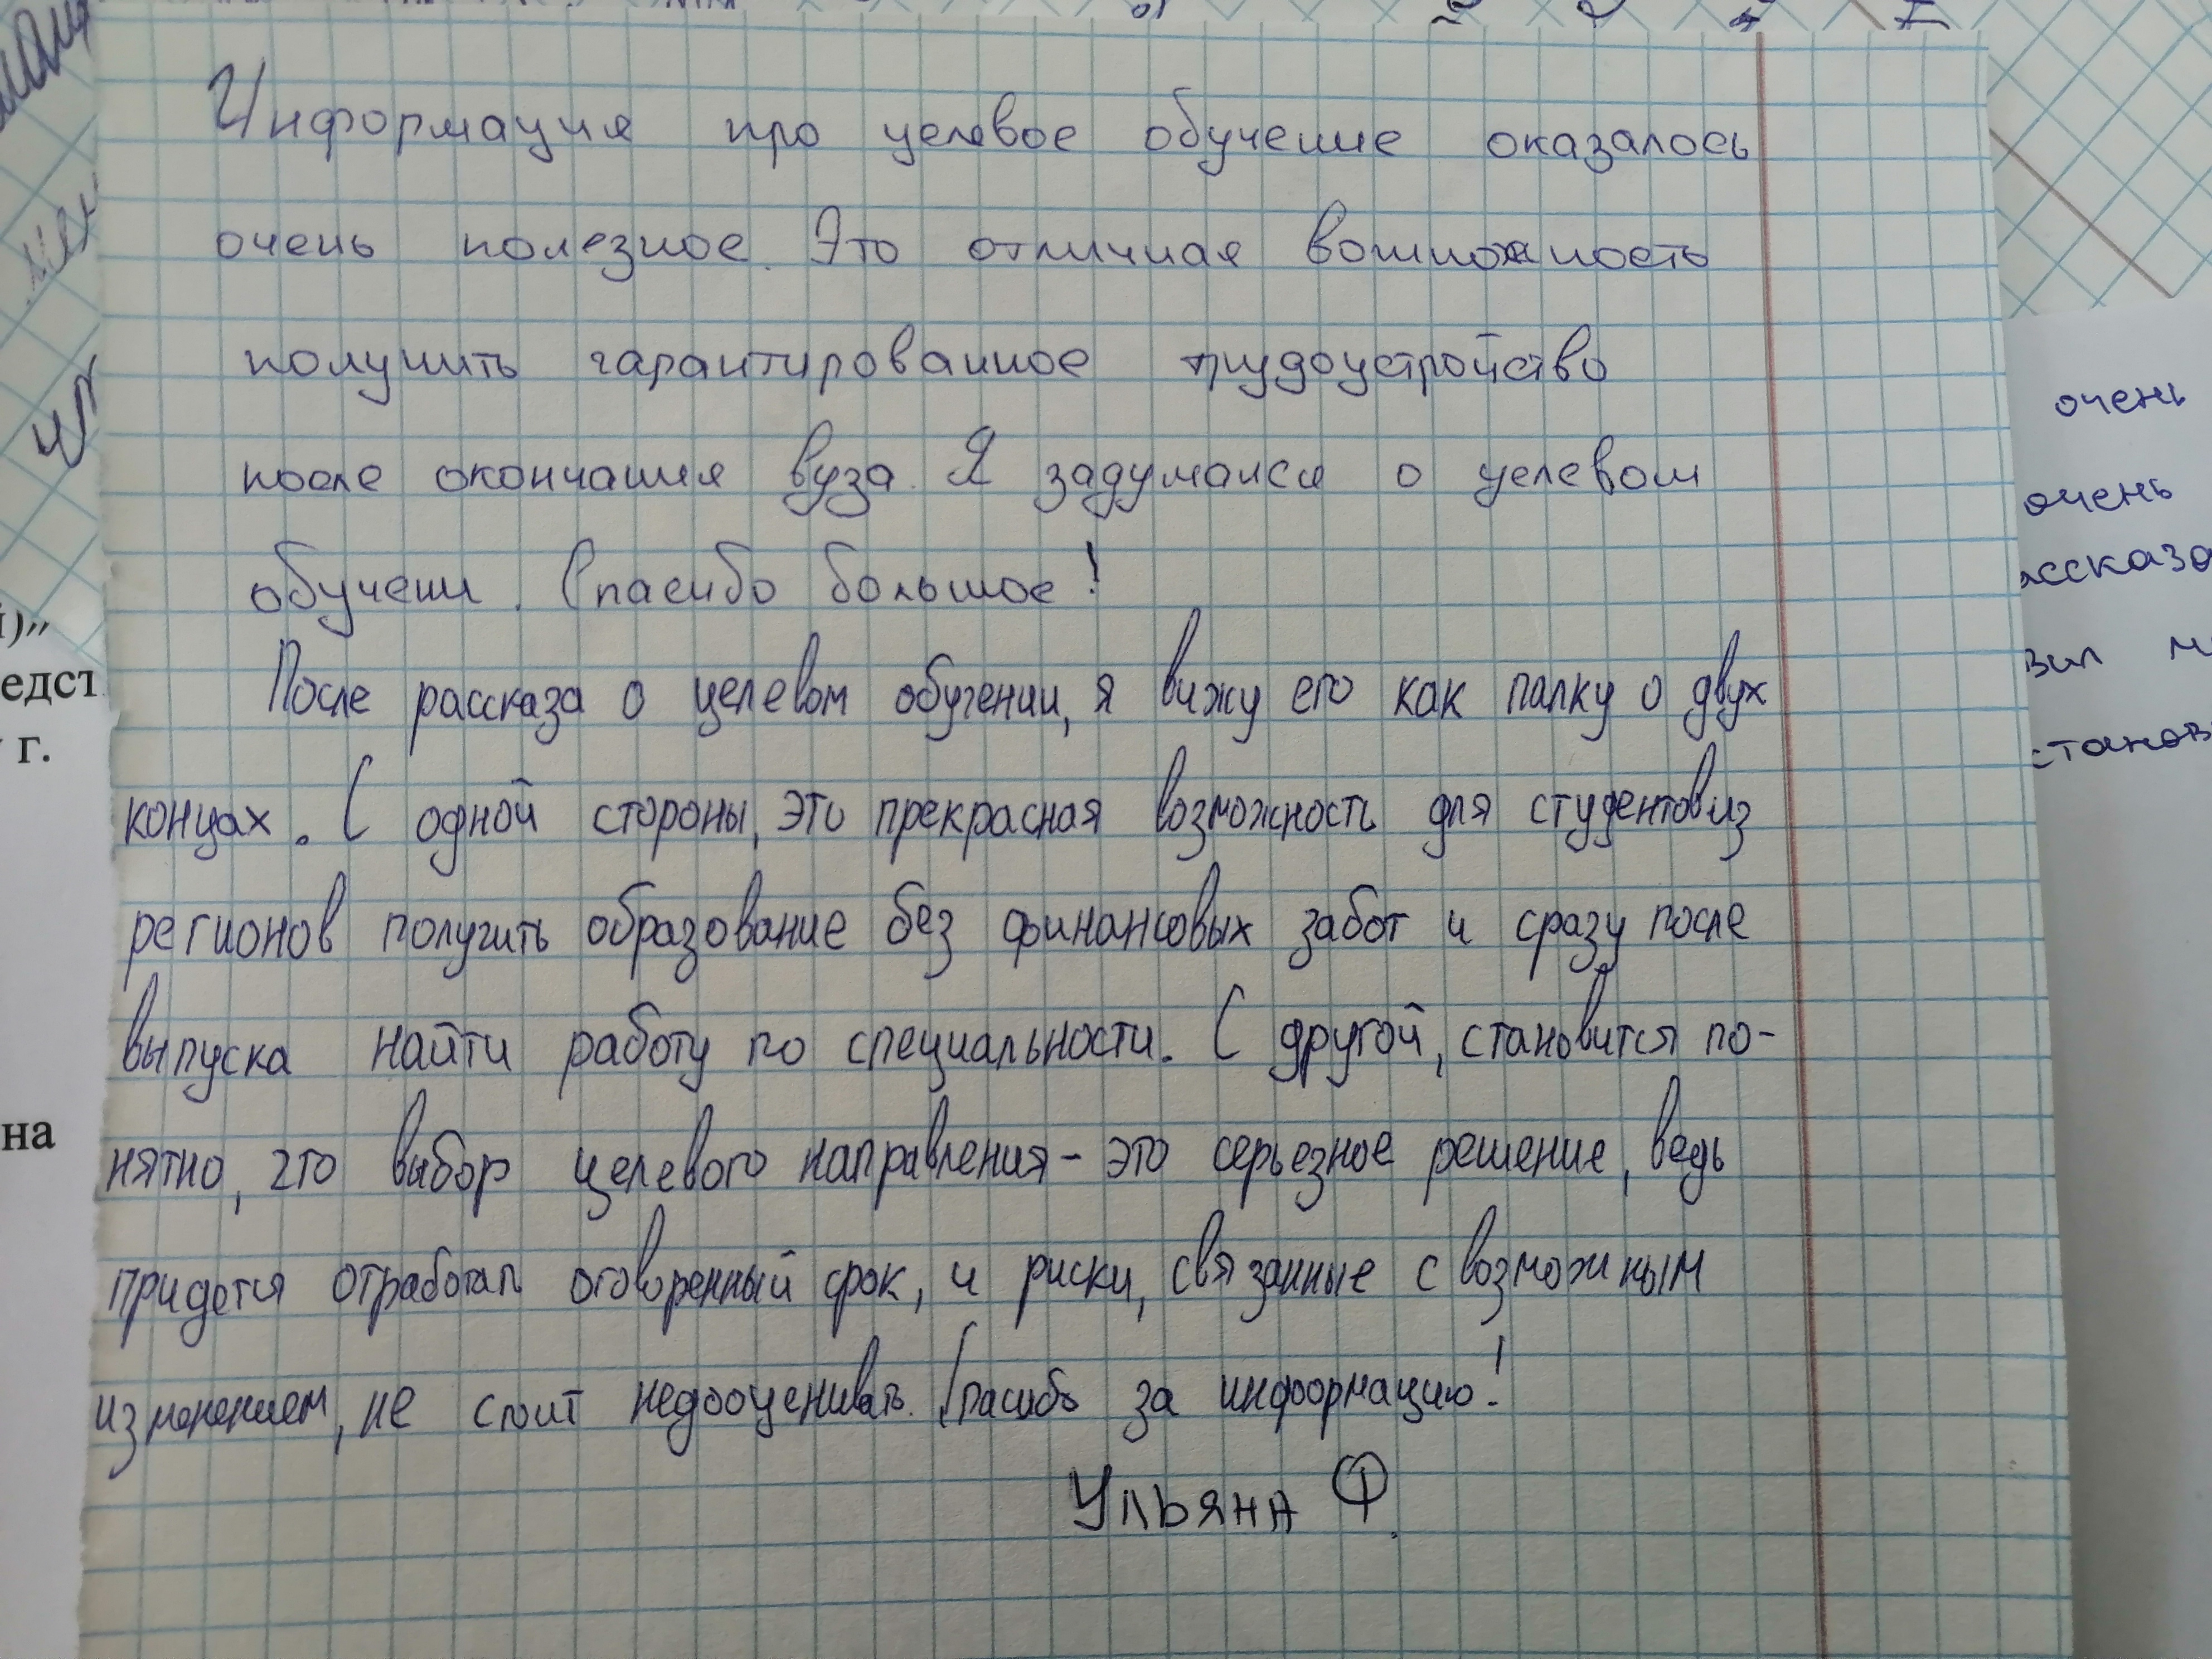 Информация про целевое обучение оказалось
очень полезное. Это отличная
получить гарантированное трудоустройство
после окончания вуза. Я задумался о целевом
обучении. Спасибо большое!
После рассказа о целевом обучении, я вижу его как палку о двух
концах. С одной стороны, это прекрасная возможность для студентов из
регионов получить образование без финансовых забот и сразу после
выпуска найти работу по специальности. С другой, становится по-
нятно, что выбор целевого направления - это серьезное решение, ведь
придется отработать оговоренный срок, и риски, связанные с возможным
изменением, не стоит недооценивать. Спасибо за информацию!
Ульяна Ф.
очень
очень
вил
едст
г.
на